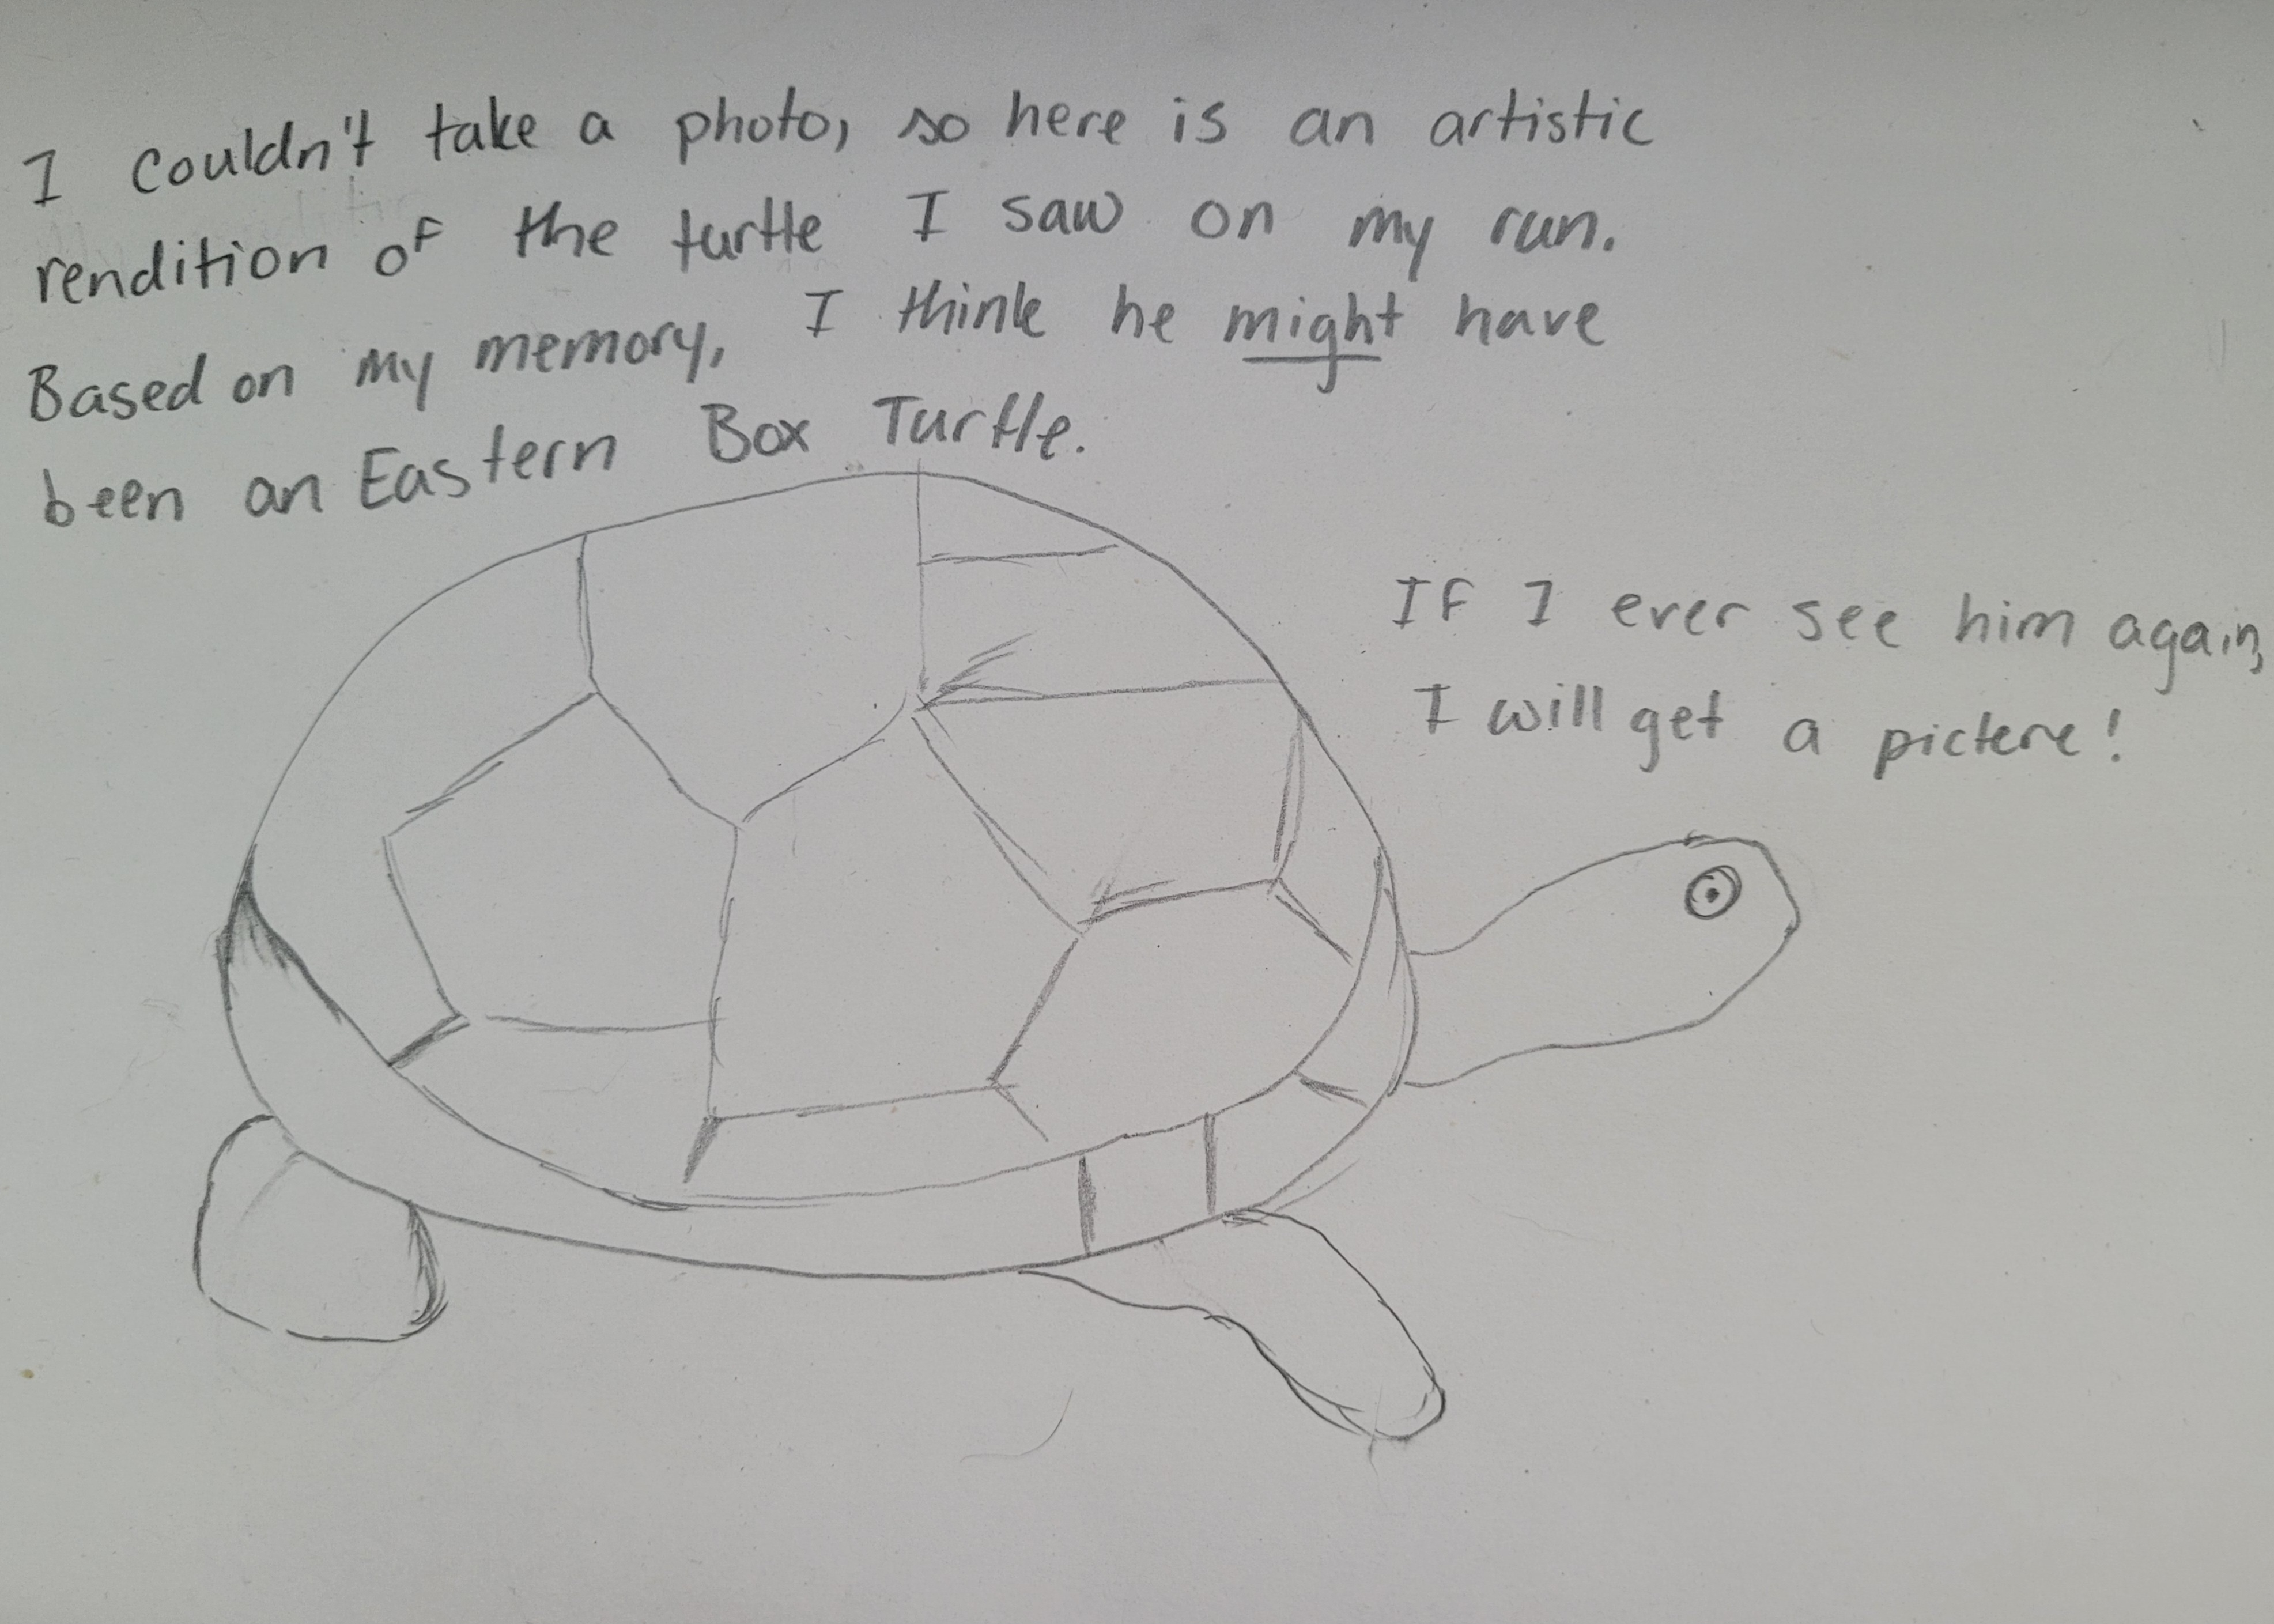 I couldn't take a photo, so here is an artistic
rendition of the turtle I saw on my run.
Based on my memory, I think he might have
been an Eastern Box Turtle.
If I ever see him again,
I will get a pictere!